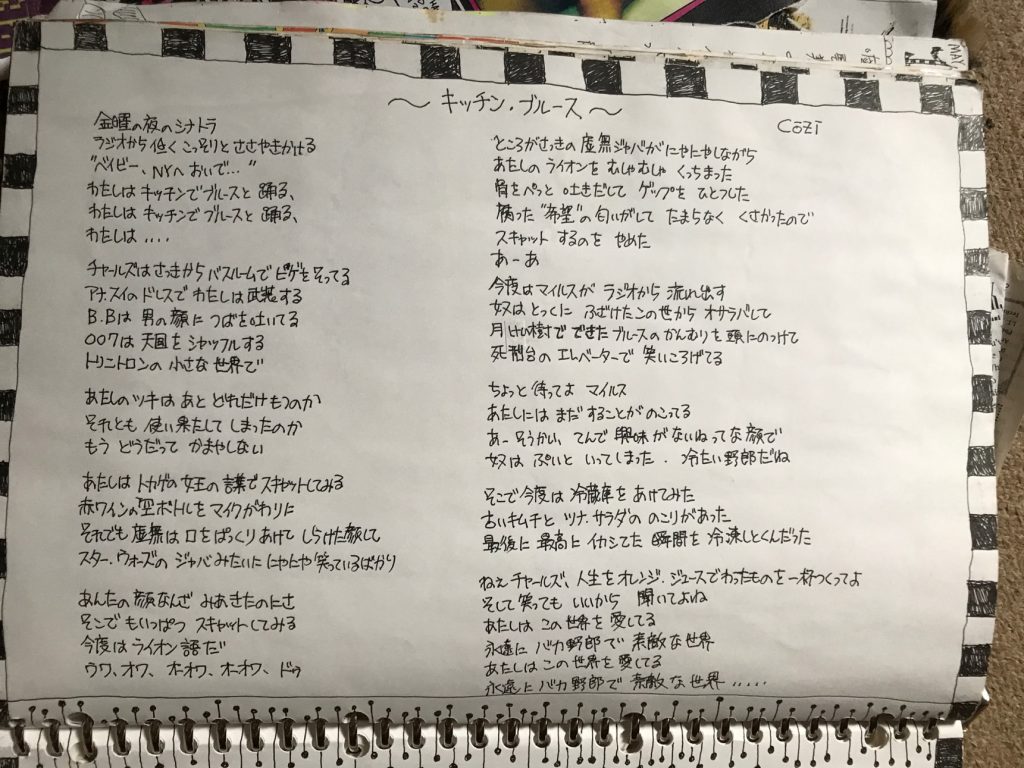 ～ キッチン・ブルース ～
Cozi
金曜の夜のシナトラ
ラジオから低くこっそりとささやきかける
"ベイビー、NYへおいで…"
わたしはキッチンでブルースと踊る、
わたしはキッチンでブルースと踊る、
わたしは ‥‥
チャールズはさっきからバスルームでヒゲをそってる
アナ.スイのドレスでわたしは武装する
B.Bは男の顔につばを吐いてる
007は天国をシャッフルする
トリニトロンの小さな世界で
あたしのツキはあとどれだけもつのか
それとも使い果たしてしまったのか
もうどうだってかまやしない
あたしはトカゲの女王の言葉でスキャットしてみる
赤ワインの空ボトルをマイクがわりに
それでも虚無は口をぱっくりあけてしらけた顔して
スター.ウォーズのジャバみたいににやにや笑っているばかり
あんたの顔なんざみあきたのにさ
そこでもいっぱつスキャットしてみる
今度はライオン語だ
ウワ、オワ、ホオワ、ホオワ、ドゥ
ところがさっきの虚無ジャバがにやにやしながら
あたしのライオンをむしゃむしゃくっちまった
骨をぺっと吐きだしてゲップをひとつした
腐った"希望"の匂いがしてたまらなくくさかったので
スキャットするのをやめた
あーあ
今度はマイルスがラジオから流れ出す
奴はとっくにふざけたこの世からオサラバして
月けい樹でできたブルースのかんむりを頭にのっけて
死刑台のエレベーターで笑いころげてる
ちょっと待ってよマイルス
あたしにはまだすることがのこってる
あーそうかい、てんで興味がないねってな顔で
奴はぷいといってしまった．冷たい野郎だね
そこで今度は冷蔵庫をあけてみた
古いキムチとツナ.サラダののこりがあった
最後に最高にイカシてた瞬間を冷凍しとくんだった
ねぇチャールズ、人生をオレンジ.ジュースでわったものを一杯つくってよ
そして笑ってもいいから聞いてよね
あたしはこの世界を愛してる
永遠にバカ野郎で素敵な世界
あたしはこの世界を愛してる
永遠にバカ野郎で素敵な世界 ‥‥‥